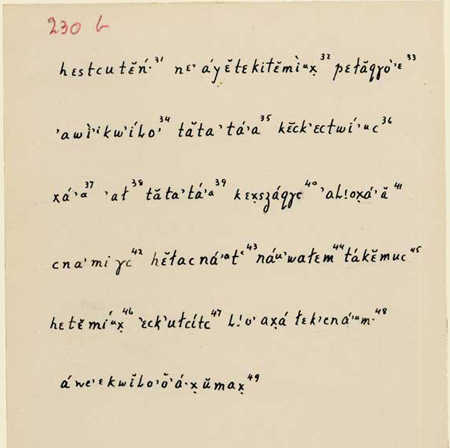 230 b
hestcutĕń·³¹ ne' áyĕtekitĕmì·ux̣³² pełăqyó'e³³
'awì'ikwíʟo'³⁴ tăta'tá'a³⁵ kēck'ectwí'uc³⁶
xá'ᵃ³⁷ 'ał³⁸ tăta'tá'a³⁹ kex̣sʒáqyc⁴⁰ 'aʟ!ox̣á'ă⁴¹
cna'miyc⁴² hĕłacná'at'⁴³ náu'wałem⁴⁴ tákĕmuc⁴⁵
hetĕmí'ux̣⁴⁶ 'eck'ułcítc⁴⁷ ʟ!o'axá łek'cná'um·⁴⁸
áwe'ekwĭʟo'ŏ'á·xŭmax̣⁴⁹